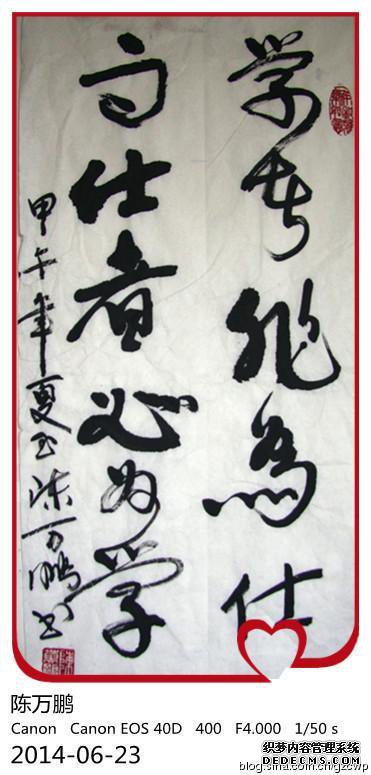 学者非為仕
而仕者必为学
甲午年夏 陈万鹏书
陈万鹏
Canon Canon EOS 40D 400 F4.000 1/50 s
2014-06-23
织梦内容管理系统
DEDECMS.COM
blog.sina.com.cn/gzcwp